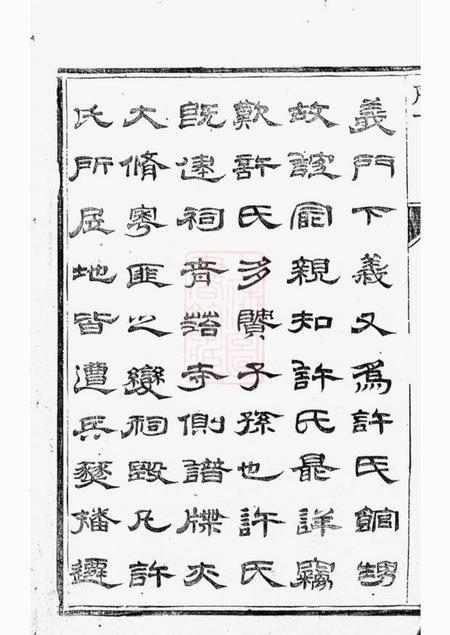 義門下義又爲許氏館甥
故誼親知許氏最詳竊
歎許氏多賢子孫也許氏
既建祠青寺側譜牒亦
大脩粵匪之變祠毀凡許
氏所居地皆遭兵燹播遷